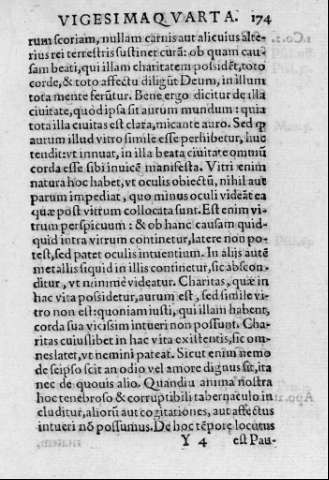 VIGESIMAQVARTA. 174
rum scoriam, nullam carnis aut alicuius alte-
rius rei terrestris sustinet curā: ob quam cau-
sam beati, qui illam charitatem possidēt, toto
corde, & toto affectu diligūt Deum, in illum
tota mente ferūtur. Bene ergo dicitur de illa
ciuitate, quòd ipsa sit aurum mundum: quia
tota illa ciuitas est clara, micante auro. Sed ꝙ
aurum illud vitro simile esse perhibetur, huc
tendit: vt innuat, in illa beata ciuitate omniū
corda esse sibi inuicē manifesta. Vitri enim
natura hoc habet, vt oculis obiectū, nihil aut
parum impediat, quo minus oculi videāt ea
quæ post vitrum collocata sunt. Est enim vi-
trum perspicuum: & ob hanc causam quid-
quid intra vitrum continetur, latere non po-
test, sed patet oculis intuentium. In alijs autē
metallis siquid in illis continetur, sic abscon-
ditur, vt nimimè videatur. Charitas, quæ in
hac vita possidetur, aurum est, sed simile vi-
tro non est: quoniam iusti, qui illam habent,
corda sua vicissim intueri non possunt. Cha-
ritas cuiuslibet in hac vita existentis, sic om-
nes latet, vt nemini pateat. Sicut enim nemo
de seipso scit an odio vel amore dignus sit, ita
nec de quouis alio. Quandiu anima nostra
hoc tenebroso & corruptibili tabernaculo in
cluditur, aliorū aut cogitationes, aut affectus
intueri nō possumus. De hoc tēpore locutus
Y 4 est Pau-